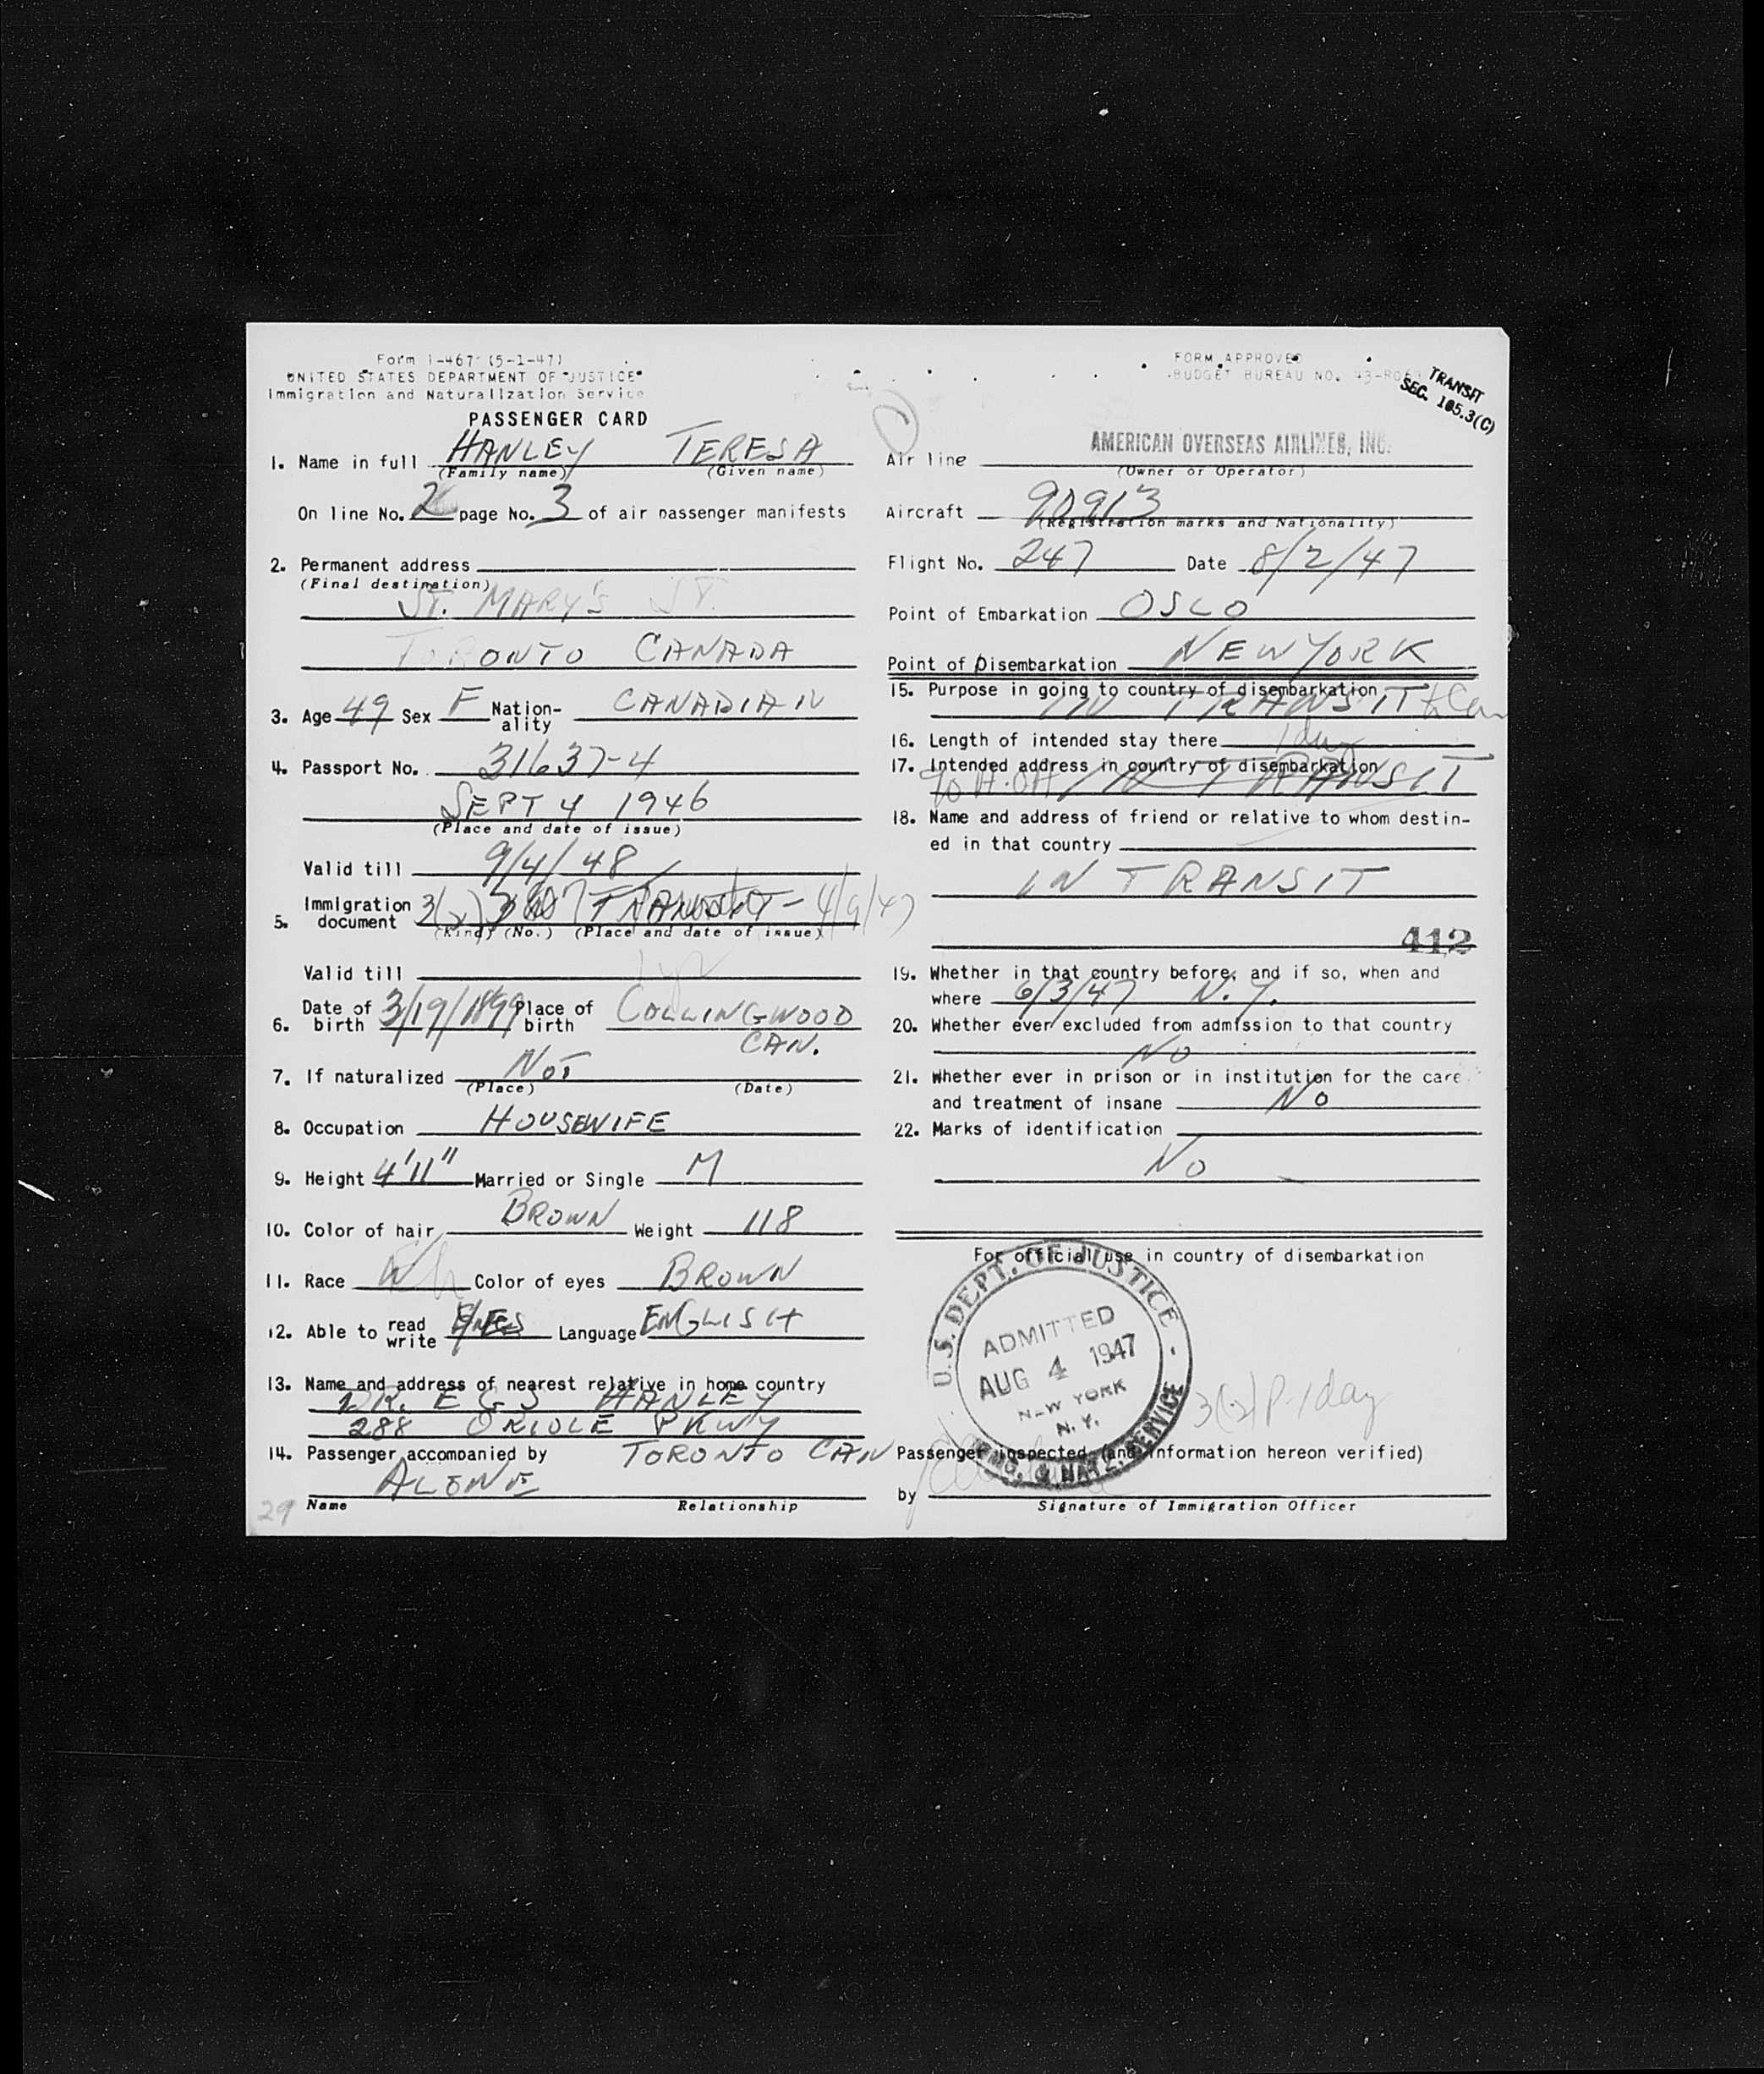 Form I-467 (5-1-47)
UNITED STATES DEPARTMENT OF JUSTICE
Immigration and Naturalization Service
PASSENGER CARD
1. Name in full HANLEY TERESA
(Family name) (Given name)
On line No. 2 page No. 3 of air passenger manifests
2. Permanent address
(Final destination)
ST. MARY'S ST.
TORONTO CANADA
3. Age 49 Sex F Nation-ality CANADIAN
4. Passport No. 31637-4
SEPT 4 1946
(Place and date of issue)
Valid till 9/4/48
5. Immigration document 3(2) 4/9/47
(Kind) (No.) (Place and date of issue)
Valid till
6. Date of birth 3/19/1899 Place of birth COLLINGWOOD
CAN.
7. If naturalized NOT
(Place) (Date)
8. Occupation HOUSEWIFE
9. Height 4'11" Married or Single M
10. Color of hair BROWN Weight 118
11. Race Wh Color of eyes BROWN
12. Able to read write Language ENGLISH
13. Name and address of nearest relative in home country
DR. E G S HANLEY
288 ORIOLE PKWY
TORONTO CAN
14. Passenger accompanied by
ALONE
Name Relationship
29
FORM APPROVED
BUDGET BUREAU NO. 43-R
TRANSIT
SEC. 105.3(C)
Air line AMERICAN OVERSEAS AIRLINES, INC.
(Owner or Operator)
Aircraft 90913
(Registration marks and Nationality)
Flight No. 247 Date 8/2/47
Point of Embarkation OSLO
Point of Disembarkation NEW YORK
15. Purpose in going to country of disembarkation
IN TRANSIT to Can
16. Length of intended stay there 1 day
17. Intended address in country of disembarkation
IN TRANSIT
18. Name and address of friend or relative to whom destin-
ed in that country
IN TRANSIT
412
19. Whether in that country before, and if so, when and
where 6/3/47 N.Y.
20. Whether ever excluded from admission to that country
NO
21. Whether ever in prison or in institution for the care
and treatment of insane NO
22. Marks of identification
NO
For official use in country of disembarkation
U.S. DEPT. OF JUSTICE
ADMITTED
AUG 4 1947
NEW YORK
N.Y.
IMMG. & NATZ. SERVICE
3(2) P-1 day
Passenger inspected (and information hereon verified)
by
Signature of Immigration Officer